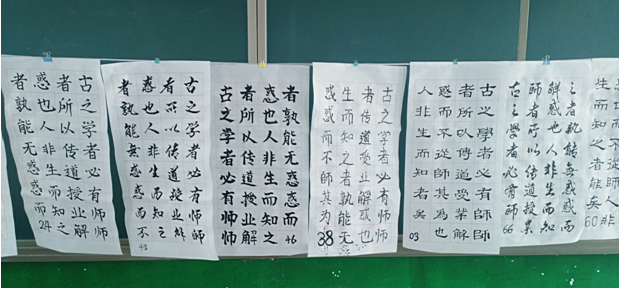 古之学者必有师师
者所以传道授业解
惑也人非生而知之
者孰能无惑惑而
24
古之学者必有师師
者所以传道授业解
惑也人非生而知之
者孰能無惑惑而不
43
古之学者必有师师
者所以传道授业解
惑也人非生而知之
者孰能无惑惑而
46
古之学者必有师
者传道受业解惑也
生而知之者孰能无
惑惑而不师其为
38
古之學者必有師師
者所以傳道受業解
惑而不從師其為也
人非生而知者矣
03
古之學者必有師
66
師者所以传道授
解惑也人非生而知
之者孰能無惑惑而
生而知之者能矣
60